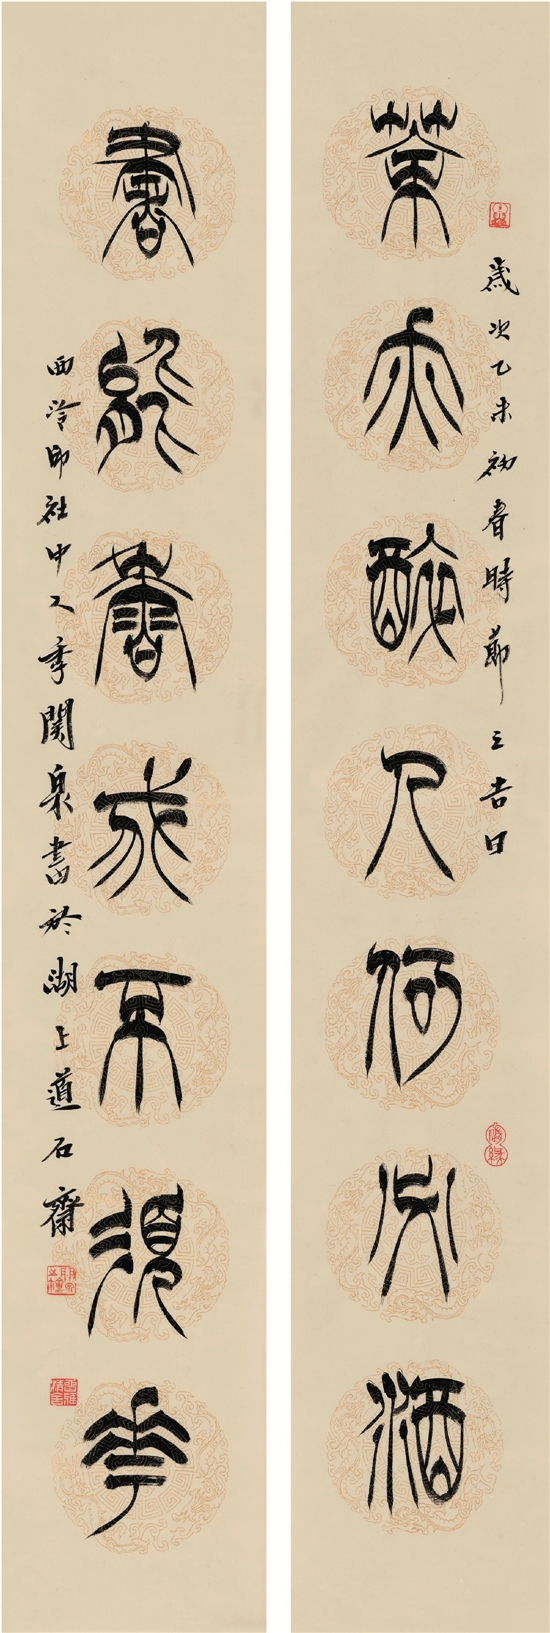 歲次乙未初春時節之吉日
茶亦醉人何必酒
書能香我不須花
西泠印社中人季關泉書於湖上道石齋